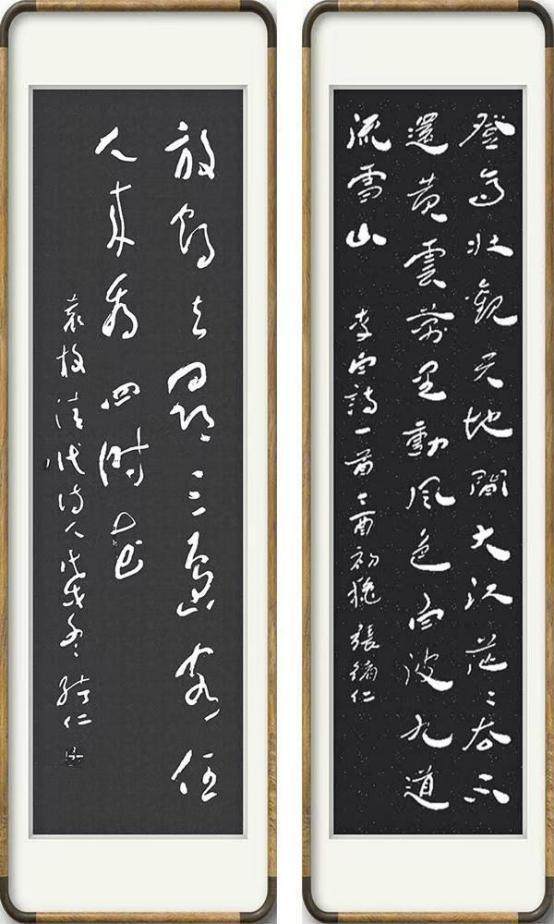 登高壯觀天地間大江茫〻去不
還黃雲萬里動風色白波九道
流雪山 李白詩一首 乙酉初穐 張緒仁
放鶴去尋三島客任
人來看四時花
袁枚清代诗人 戊戌冬 緒仁